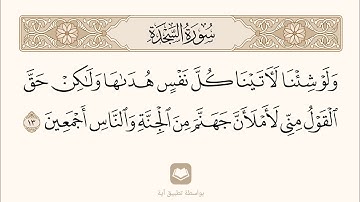 سُورَةُ السَّجْدَةِ
وَلَوْ شِئْنَا لَأٓتَيْنَا كُلَّ نَفْسٍ هُدَىٰهَا وَلَٰكِنْ حَقَّ
ٱلْقَوْلُ مِنِّي لَأَمْلَأَنَّ جَهَنَّمَ مِنَ ٱلْجِنَّةِ وَٱلنَّاسِ أَجْمَعِينَ ١٣
بواسطة تطبيق آية